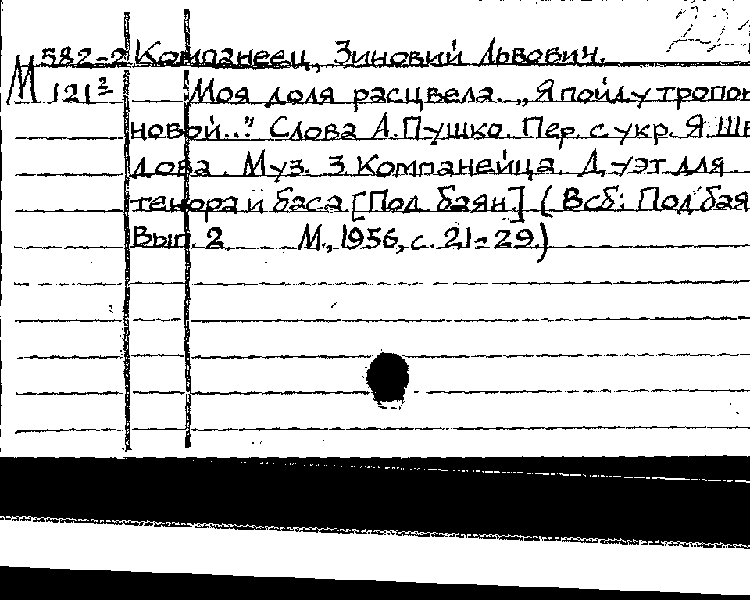 М 582-2 Компанеец, Зиновий Львович.
121² Моя доля расцвела. „Я пойду тропою
новой..." Слова А. Пушко. Пер. с укр. Я. Шве
дова. Муз. З. Компанейца. Дуэт для
тенора и баса [Под баян] (В сб: Под бая
Вып. 2 М., 1956, с. 21-29.)